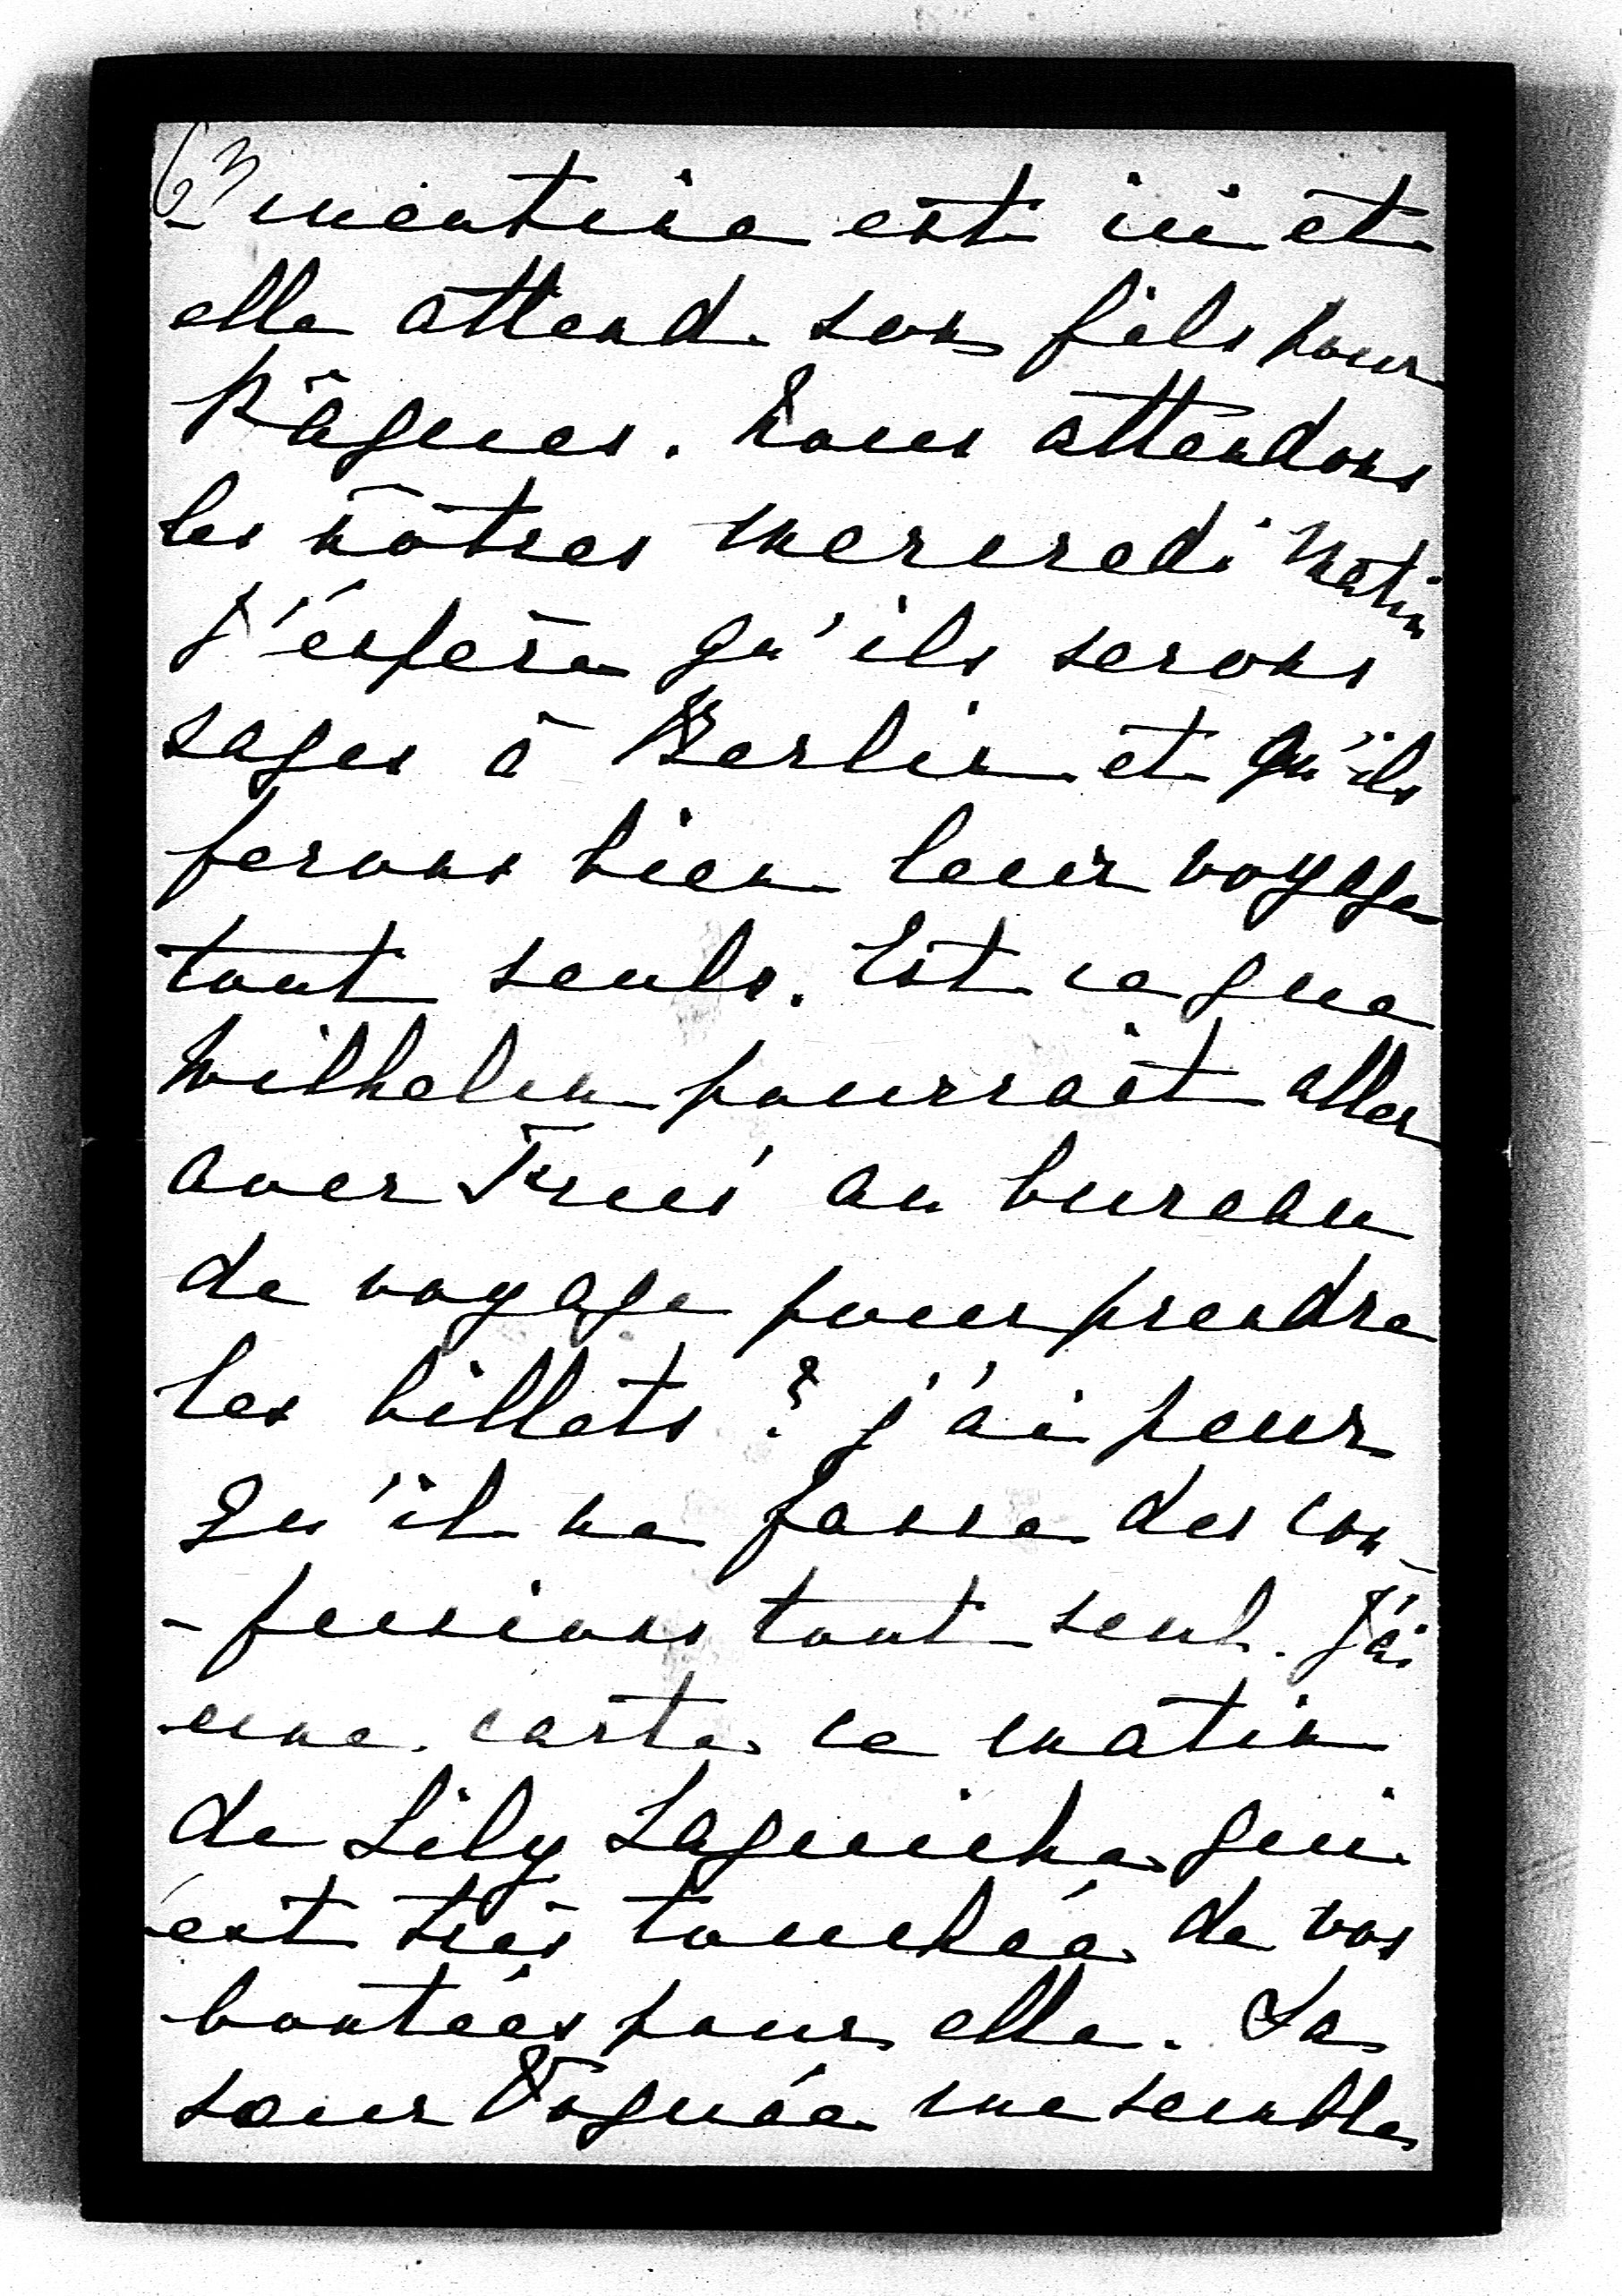 - mentine est ici et
elle attend son fils pour
Pâques. Nous attendons
les nôtres mercredi matin
J'espère qu'ils serons
sages à Berlin et qu'ils
ferons bien leur voyage
tout seuls. Est ce que
Wilhelm pourrait aller
avec au bureau
de voyage pour prendre
les billets? j'ai peur
qu'il ne fasse des con-
-fusions tout seul. J'ai
une carte ce matin
de Lily qui
est très touchée de vos
bontées pour elle. La
sœur Vogüée me semble